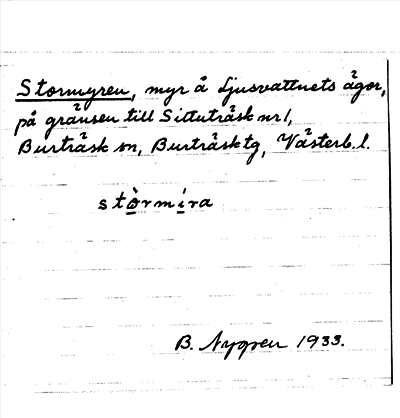 Stormyren, myr å Ljusvattnets ägor,
på gränsen till Sittuträsk nr 1,
Burträsk sn, Burträsk tg, Västerb. l.
stòrmíra
B. Nygren 1933.